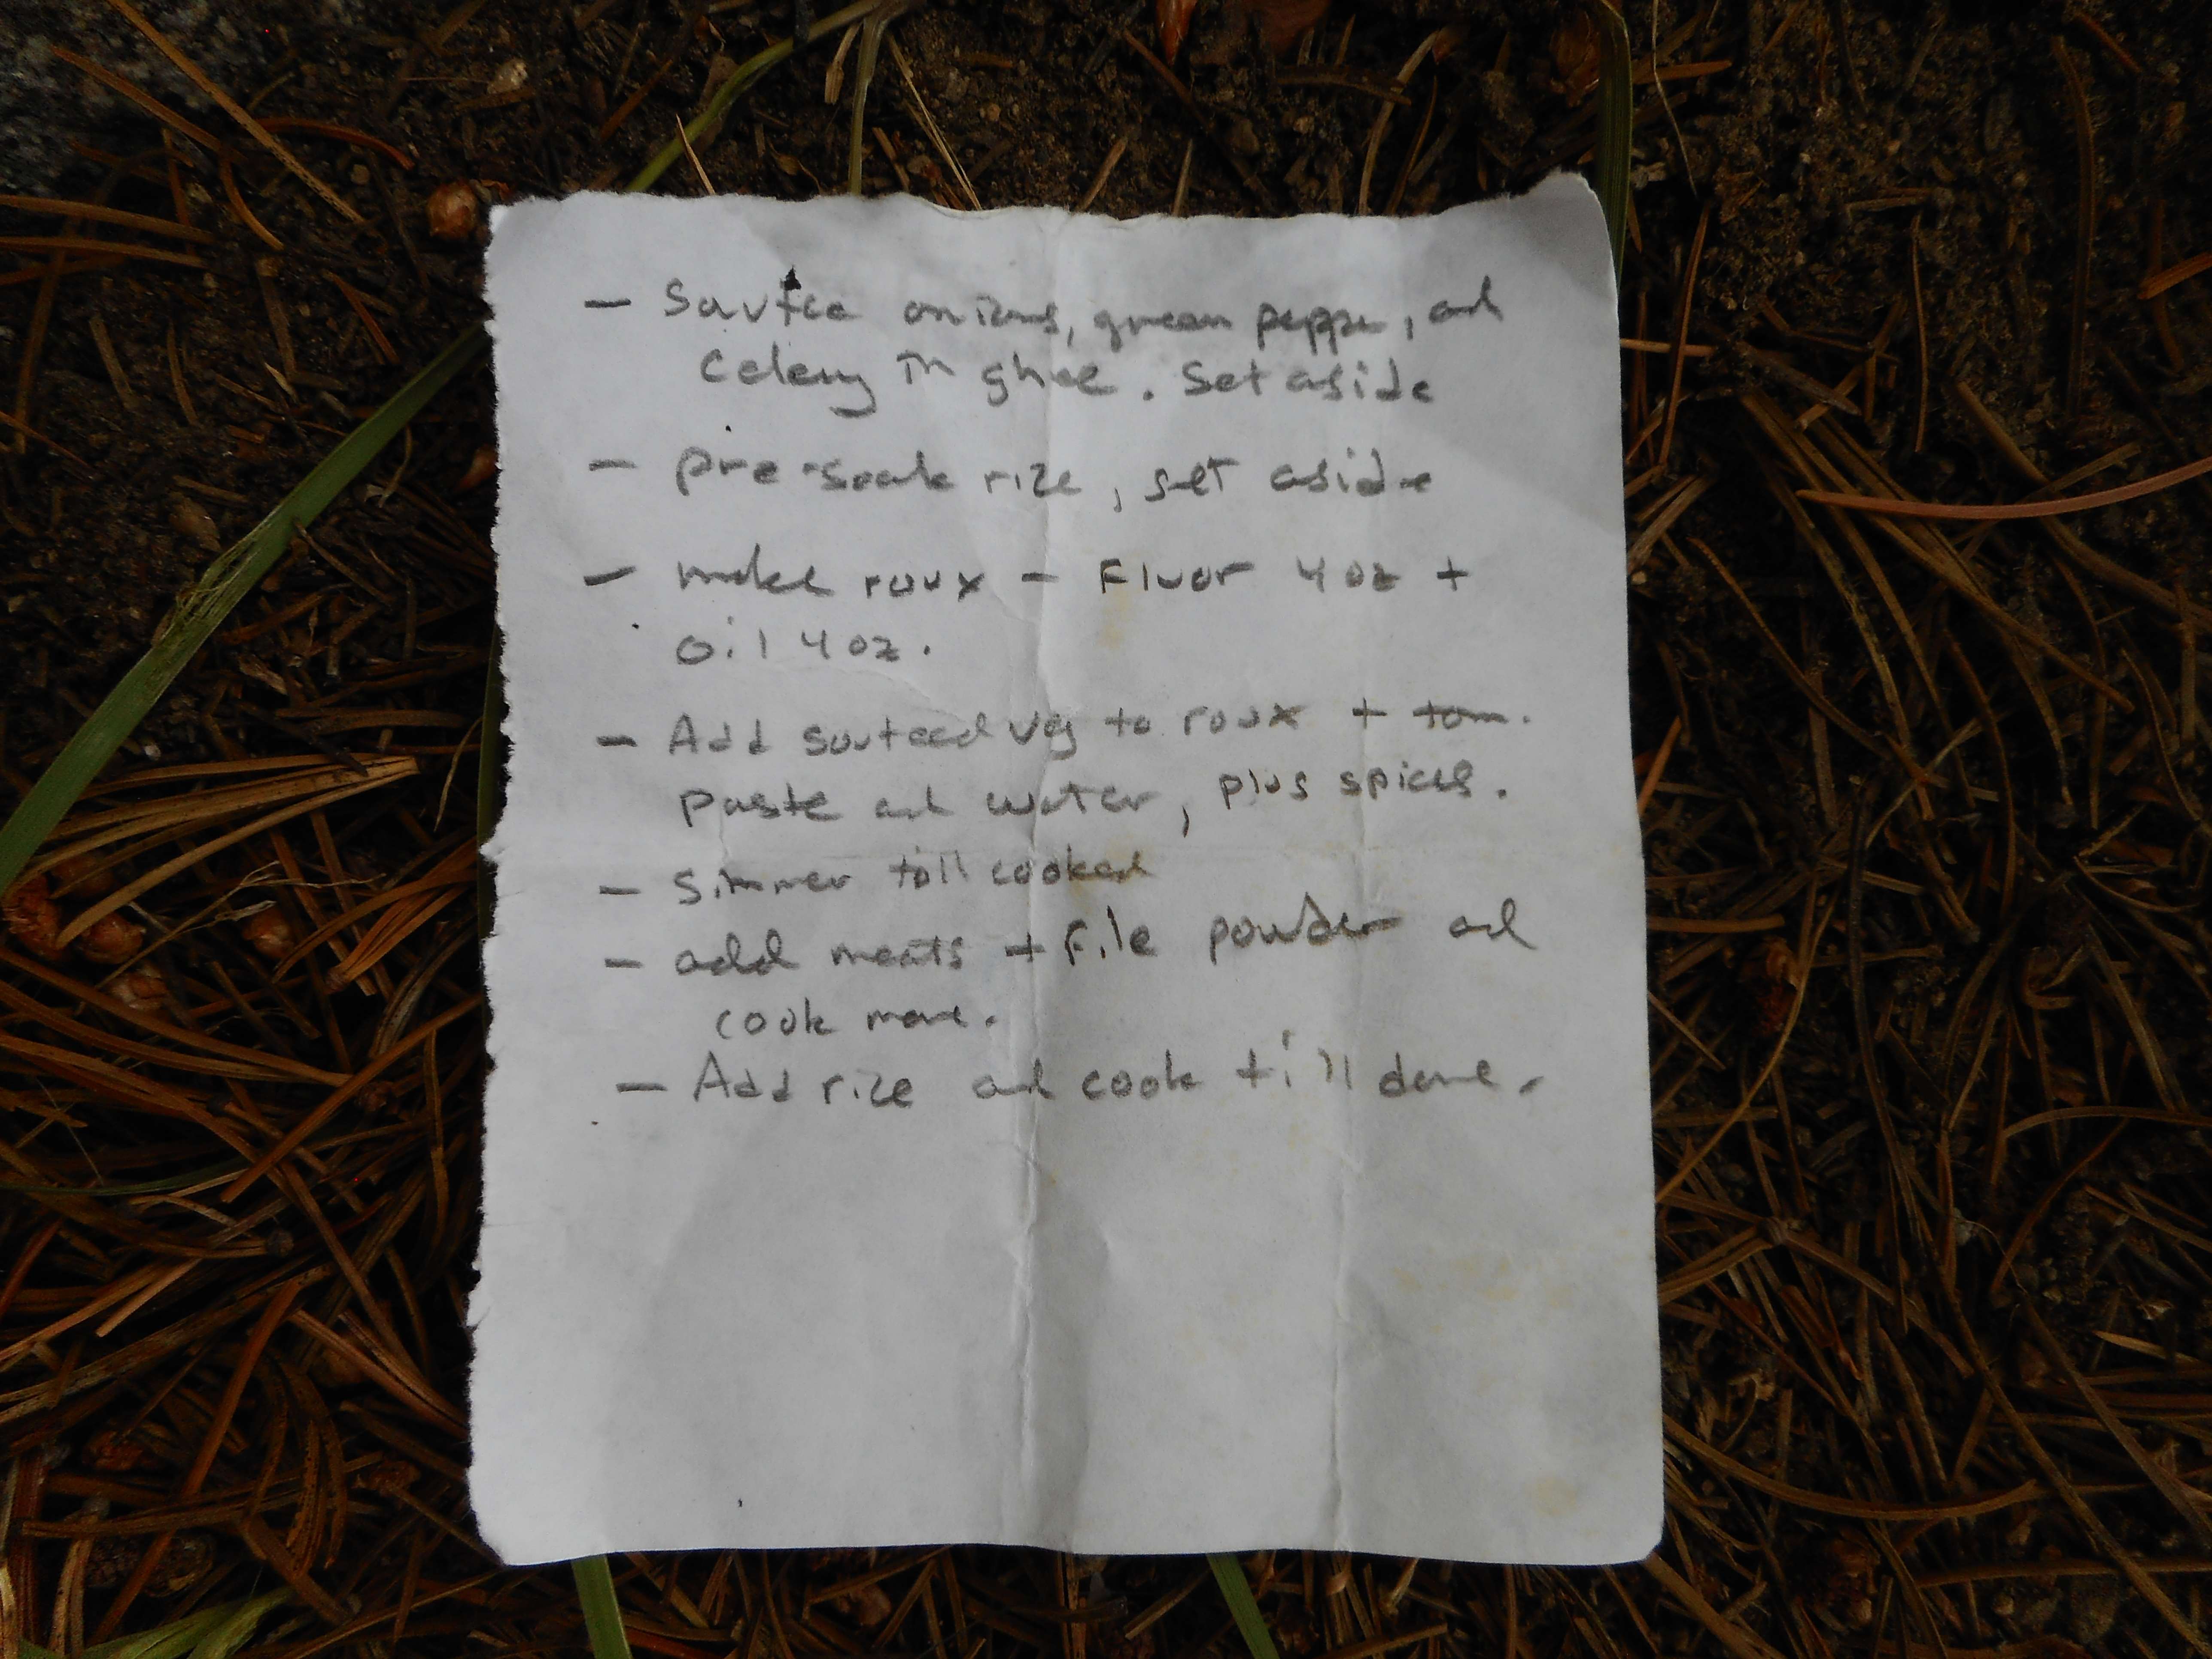 - Sautee onions, green pepper, and
Celery in ghee. Set aside
- pre-soak rice, set aside
- make roux - Fluor 4 oz +
oil 4 oz.
- Add sauteed veg to roux + tom.
paste and water, plus spices.
- Simmer till cooked
- add meats + File powder and
cook more.
- Add rice and cook till done.